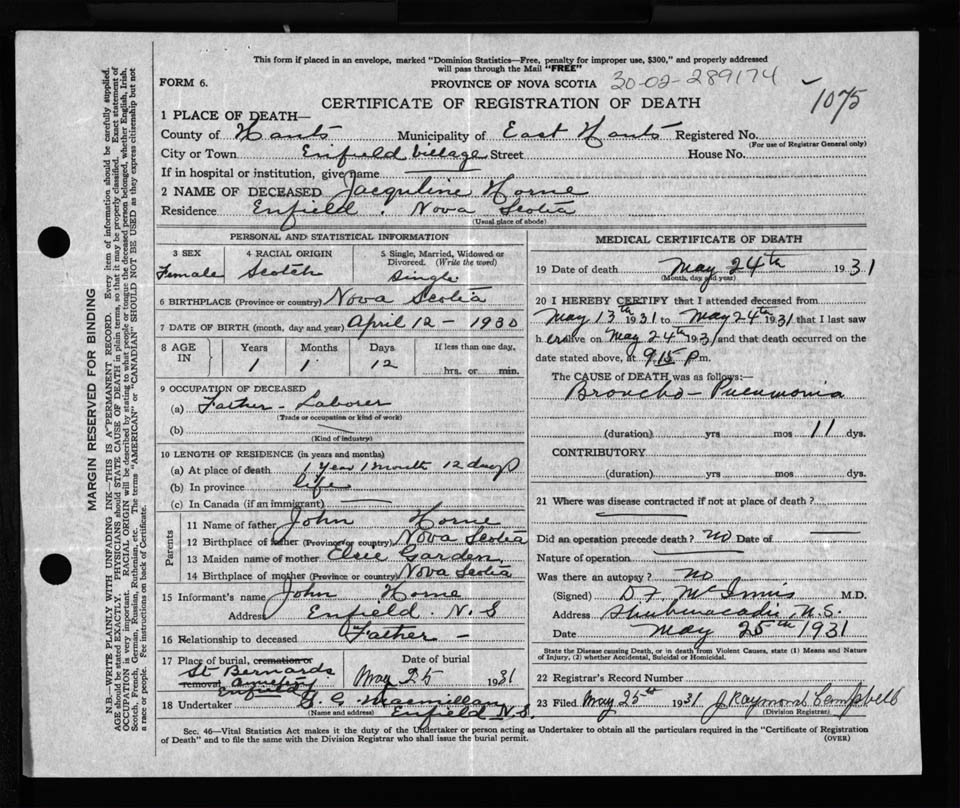 This form if placed in an envelope, marked "Dominion Statistics—Free, penalty for improper use, $300," and properly addressed
will pass through the Mail "FREE"
FORM 6. PROVINCE OF NOVA SCOTIA 30-02-289174
CERTIFICATE OF REGISTRATION OF DEATH 1075
1 PLACE OF DEATH—
County of Hants Municipality of East Hants Registered No.
(For use of Registrar General only)
City or Town Enfield Village Street House No.
If in hospital or institution, give name
2 NAME OF DECEASED Jacquline Horne
Residence Enfield. Nova Scotia
(Usual place of abode)
PERSONAL AND STATISTICAL INFORMATION
3 SEX 4 RACIAL ORIGIN 5 Single, Married, Widowed or
Divorced. (Write the word)
Female Scotch Single
6 BIRTHPLACE (Province or country) Nova Scotia
7 DATE OF BIRTH (month, day and year) April 12 - 1930
8 AGE IN Years Months Days If less than one day,
1 1 12 hrs. or min.
9 OCCUPATION OF DECEASED
(a) Father - Laborer
(Trade or occupation or kind of work)
(b)
(Kind of industry)
10 LENGTH OF RESIDENCE (in years and months)
(a) At place of death 1 year 1 month 12 days
(b) In province life
(c) In Canada (if an immigrant)
Parents
11 Name of father John Horne
12 Birthplace of father (Province or country) Nova Scotia
13 Maiden name of mother Elsie Garden
14 Birthplace of mother (Province or country) Nova Scotia
15 Informant's name John Horne
Address Enfield. N.S
16 Relationship to deceased Father -
17 Place of burial, cremation or Date of burial
removal
St Bernards
cemetery
Enfield
May 25 1931
18 Undertaker
(Name and address) Enfield N.S.
MEDICAL CERTIFICATE OF DEATH
19 Date of death May 24th 1931
(Month, day and year)
20 I HEREBY CERTIFY that I attended deceased from
May 13th 1931 to May 24th 1931 that I last saw
h er alive on May 24th 1931 and that death occurred on the
date stated above, at 9.15 p.m.
The CAUSE OF DEATH was as follows:—
Broncho-Pneumonia
(duration) yrs mos 11 dys.
CONTRIBUTORY
(duration) yrs mos dys.
21 Where was disease contracted if not at place of death?
Did an operation precede death? no Date of
Nature of operation
Was there an autopsy? no
(Signed) D F McInnis M.D.
Address Shubenacadie, N.S.
Date May 25th 1931
State the Disease causing Death, or in death from Violent Causes, state (1) Means and
Nature of Injury, (2) whether Accidental, Suicidal or Homicidal.
22 Registrar's Record Number
23 Filed May 25th 1931 J Raymond Campbell
(Division Registrar)
Sec. 46—Vital Statistics Act makes it the duty of the Undertaker or person acting as Undertaker to obtain all the particulars required in the "Certificate of Registration
of Death" and to file the same with the Division Registrar who shall issue the burial permit. (OVER)
MARGIN RESERVED FOR BINDING
N.B.—WRITE PLAINLY WITH UNFADING INK—THIS IS A PERMANENT RECORD. Every item of information should be carefully supplied.
AGE should be stated EXACTLY. PHYSICIANS should STATE CAUSE OF DEATH in plain terms, so that it may be properly classified. Exact statement of
OCCUPATION is very important. RACIAL ORIGIN will be described by stating to what people or tongue the deceased person belonged, whether English, Irish,
Scotch, French, German, Russian, Ruthenian, etc. The terms "AMERICAN" or "CANADIAN" SHOULD NOT BE USED as they express citizenship but not
a race or people. Fee instructions on back of Certificate.